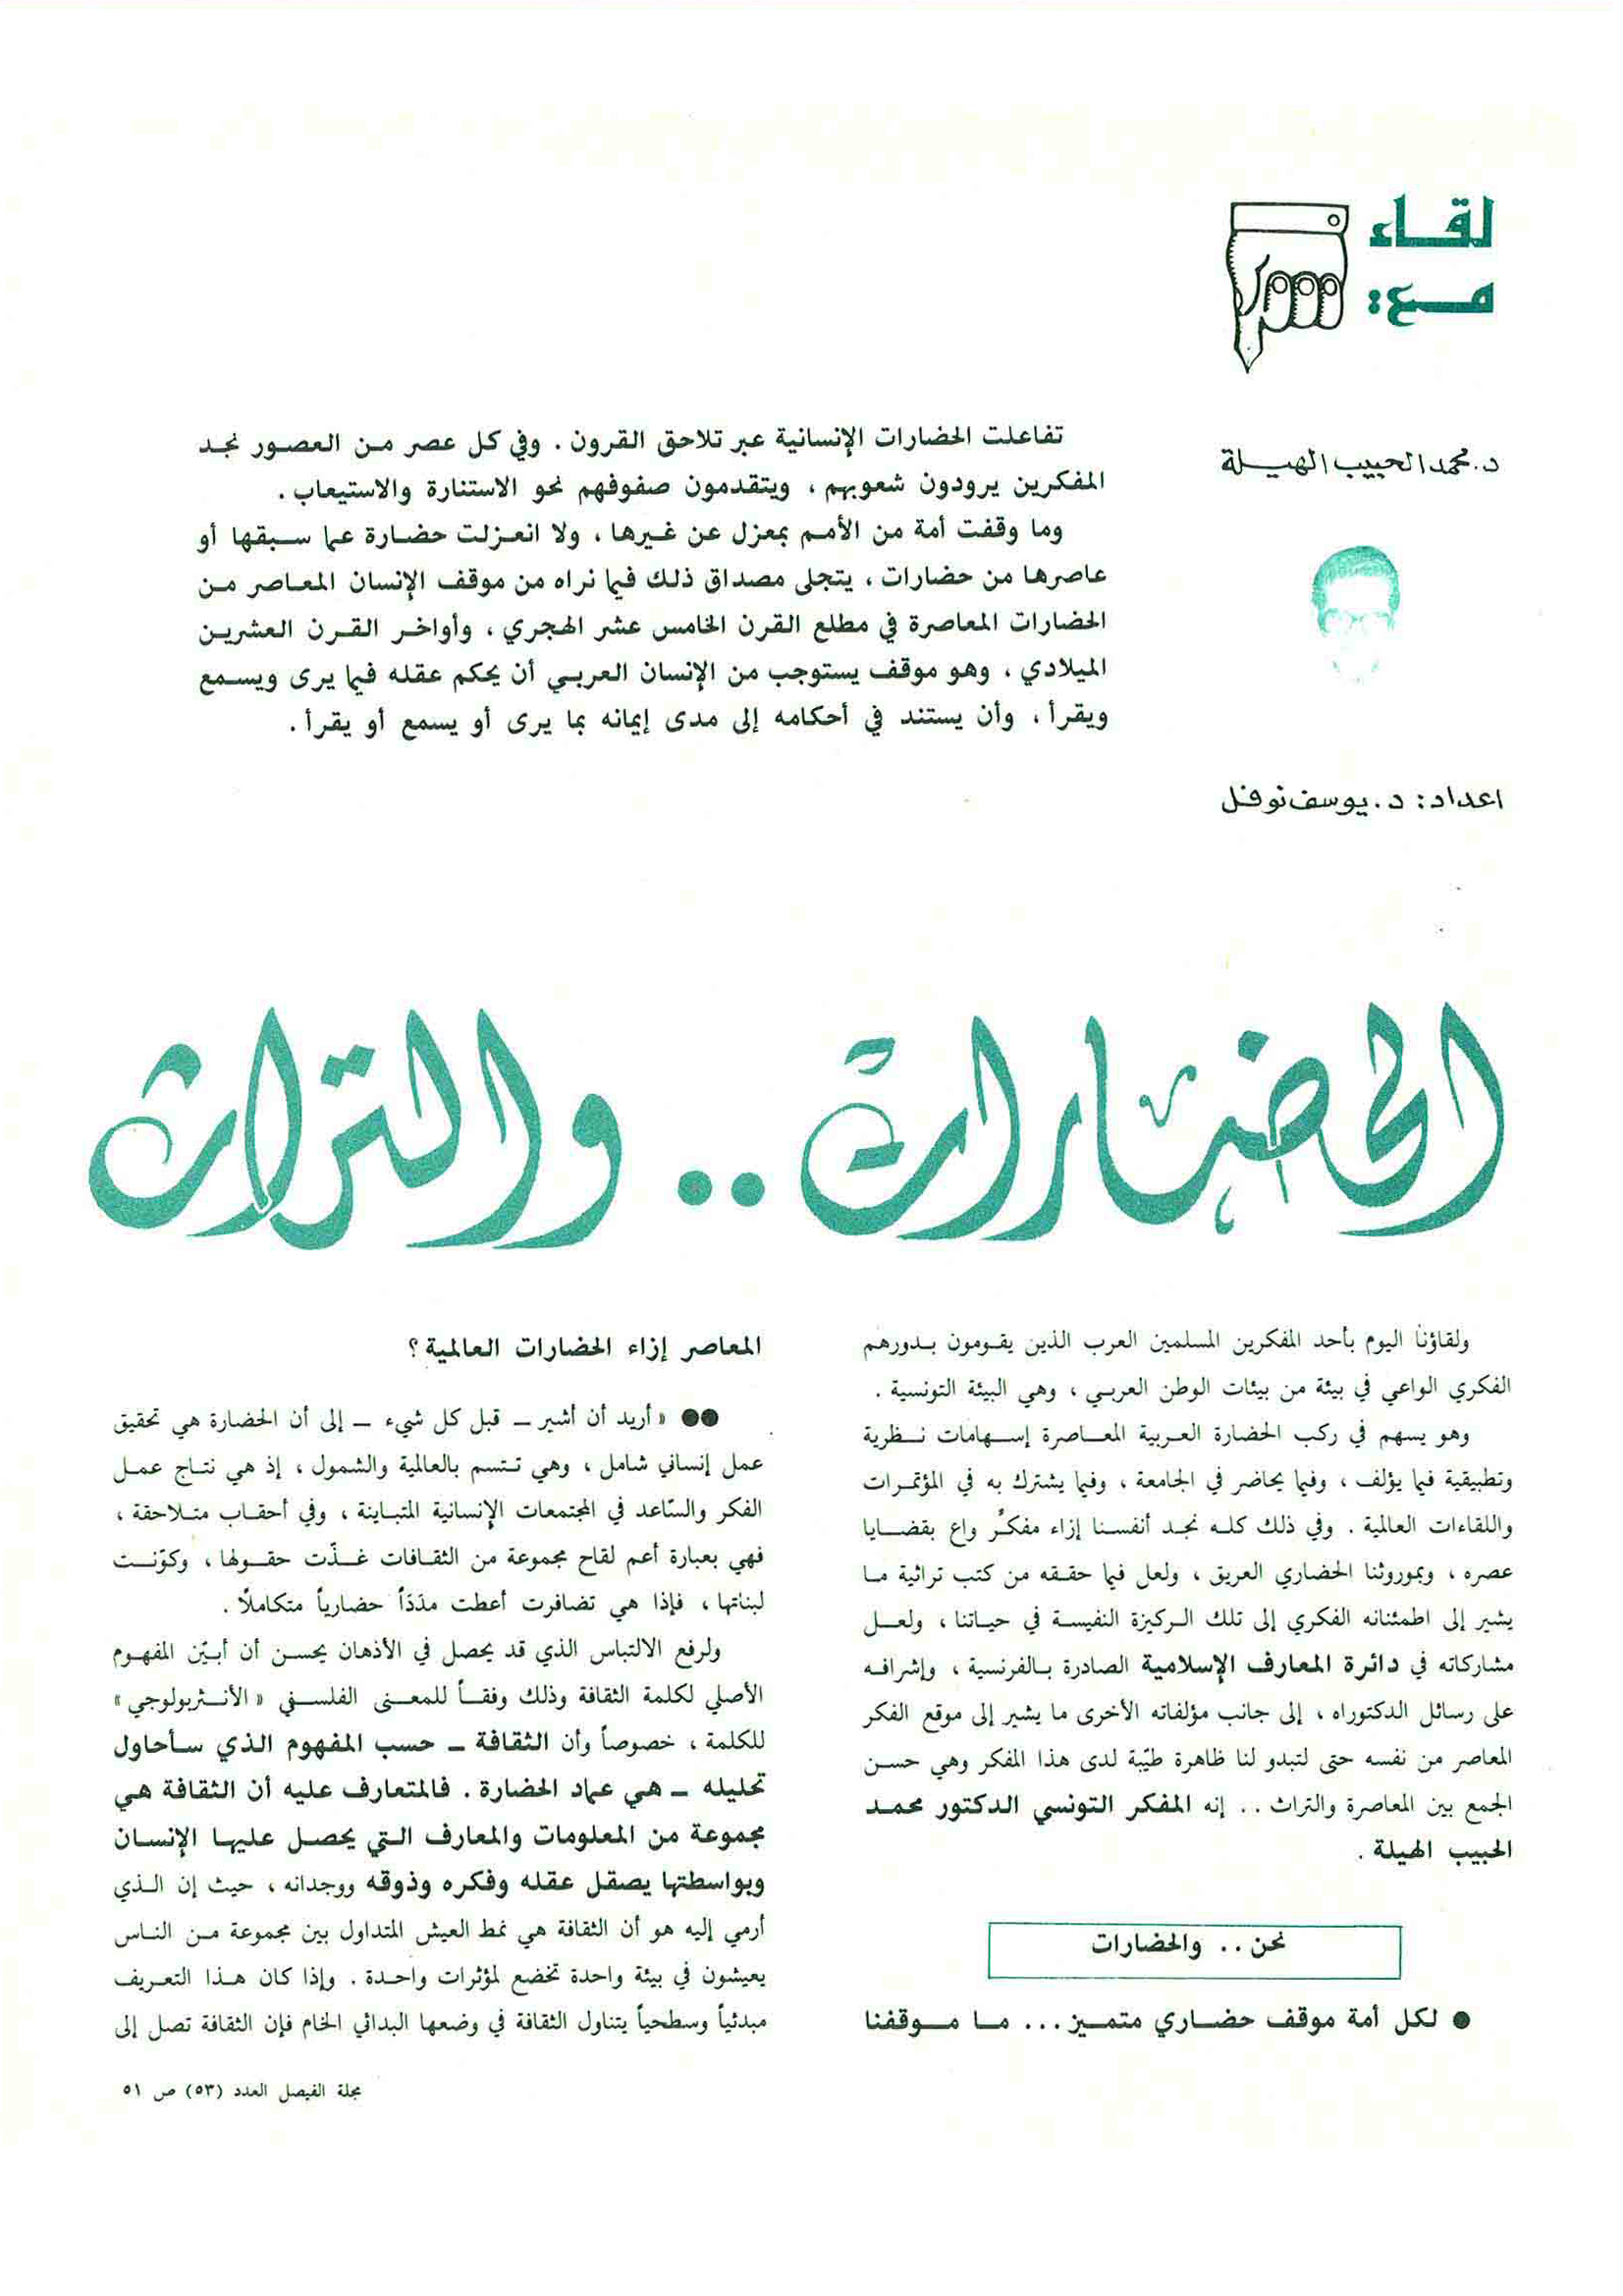 لقاء
مع:
د. محمد الحبيب الهيلة
تفاعلت الحضارات الإنسانية عبر تلاحق القرون . وفي كل عصر من العصور نجد
المفكرين يرودون شعوبهم ، ويتقدمون صفوفهم نحو الاستنارة والاستيعاب .
وما وقفت أمة من الأمم بمعزل عن غيرها ، ولا انعزلت حضارة عما سبقها أو
عاصرها من حضارات ، يتجلى مصداق ذلك فيما نراه من موقف الإنسان المعاصر من
الحضارات المعاصرة في مطلع القرن الخامس عشر الهجري ، وأواخر القرن العشرين
الميلادي ، وهو موقف يستوجب من الإنسان العربي أن يحكم عقله فيما يرى ويسمع
ويقرأ ، وأن يستند في أحكامه إلى مدى إيمانه بما يرى أو يسمع أو يقرأ .
اعداد: د. يوسف نوفل
الحضارات .. والتراث
ولقاؤنا اليوم بأحد المفكرين المسلمين العرب الذين يقومون بدورهم
الفكري الواعي في بيئة من بيئات الوطن العربي ، وهي البيئة التونسية .
وهو يسهم في ركب الحضارة العربية المعاصرة إسهامات نظرية
وتطبيقية فيما يؤلف ، وفيما يحاضر في الجامعة ، وفيما يشترك به في المؤتمرات
واللقاءات العالمية . وفي ذلك كله نجد أنفسنا إزاء مفكرٍ واع بقضايا
عصره ، وبموروثنا الحضاري العريق ، ولعل فيما حققه من كتب تراثية ما
يشير إلى اطمئنانه الفكري إلى تلك الركيزة النفيسة في حياتنا ، ولعل
مشاركاته في دائرة المعارف الإسلامية الصادرة بالفرنسية ، وإشرافه
على رسائل الدكتوراه ، إلى جانب مؤلفاته الأخرى ما يشير إلى موقع الفكر
المعاصر من نفسه حتى لتبدو لنا ظاهرة طيّبة لدى هذا المفكر وهي حسن
الجمع بين المعاصرة والتراث .. إنه المفكر التونسي الدكتور محمد
الحبيب الهيلة .
نحن .. والحضارات
● لكل أمة موقف حضاري متميز ... ما موقفنا
المعاصر إزاء الحضارات العالمية ؟
●● « أريد أن أشير – قبل كل شيء – إلى أن الحضارة هي تحقيق
عمل إنساني شامل ، وهي تتسم بالعالمية والشمول ، إذ هي نتاج عمل
الفكر والسّاعد في المجتمعات الإنسانية المتباينة ، وفي أحقاب متلاحقة ،
فهي بعبارة أعم لقاح مجموعة من الثقافات غذّت حقولها ، وكوّنت
لبناتها ، فإذا هي تضافرت أعطت مدَدَاً حضارياً متكاملاً .
ولرفع الالتباس الذي قد يحصل في الأذهان يحسن أن أبيّن المفهوم
الأصلي لكلمة الثقافة وذلك وفقاً للمعنى الفلسفي « الأنثربولوجي »
للكلمة ، خصوصاً وأن الثقافة – حسب المفهوم الذي سأحاول
تحليله – هي عماد الحضارة . فالمتعارف عليه أن الثقافة هي
مجموعة من المعلومات والمعارف التي يحصل عليها الإنسان
وبواسطتها يصقل عقله وفكره وذوقه ووجدانه ، حيث إن الذي
أرمي إليه هو أن الثقافة هي نمط العيش المتداول بين مجموعة من الناس
يعيشون في بيئة واحدة تخضع لمؤثرات واحدة . وإذا كان هذا التعريف
مبدئياً وسطحياً يتناول الثقافة في وضعها البدائي الخام فإن الثقافة تصل إلى
مجلة الفيصل العدد (٥٣) ص ٥١